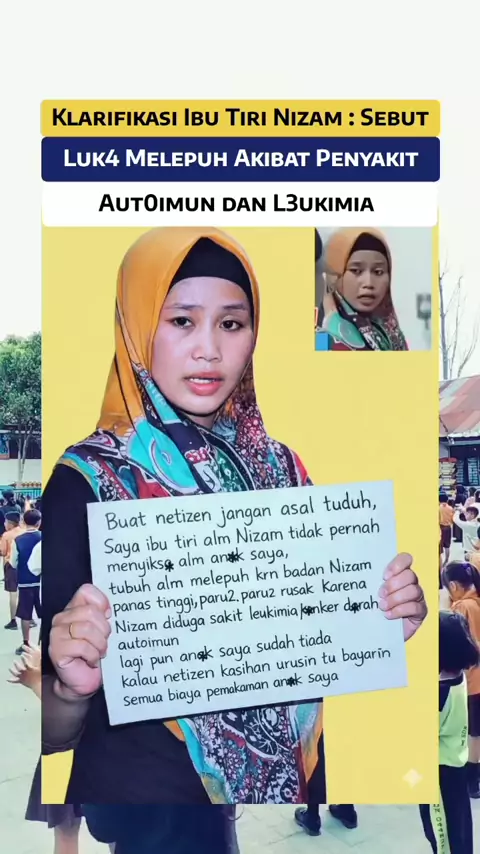 Klarifikasi Ibu Tiri Nizam : Sebut
Luk4 Melepuh Akibat Penyakit
Aut0imun dan L3ukimia
Buat netizen jangan asal tuduh,
Saya ibu tiri alm Nizam tidak pernah
menyiksa alm anak saya,
tubuh alm melepuh krn badan Nizam
panas tinggi, paru2. paru2 rusak Karena
Nizam diduga sakit leukimia/kanker darah
autoimun
lagi pun anak saya sudah tiada
kalau netizen kasihan urusin tu bayarin
semua biaya pemakaman anak saya